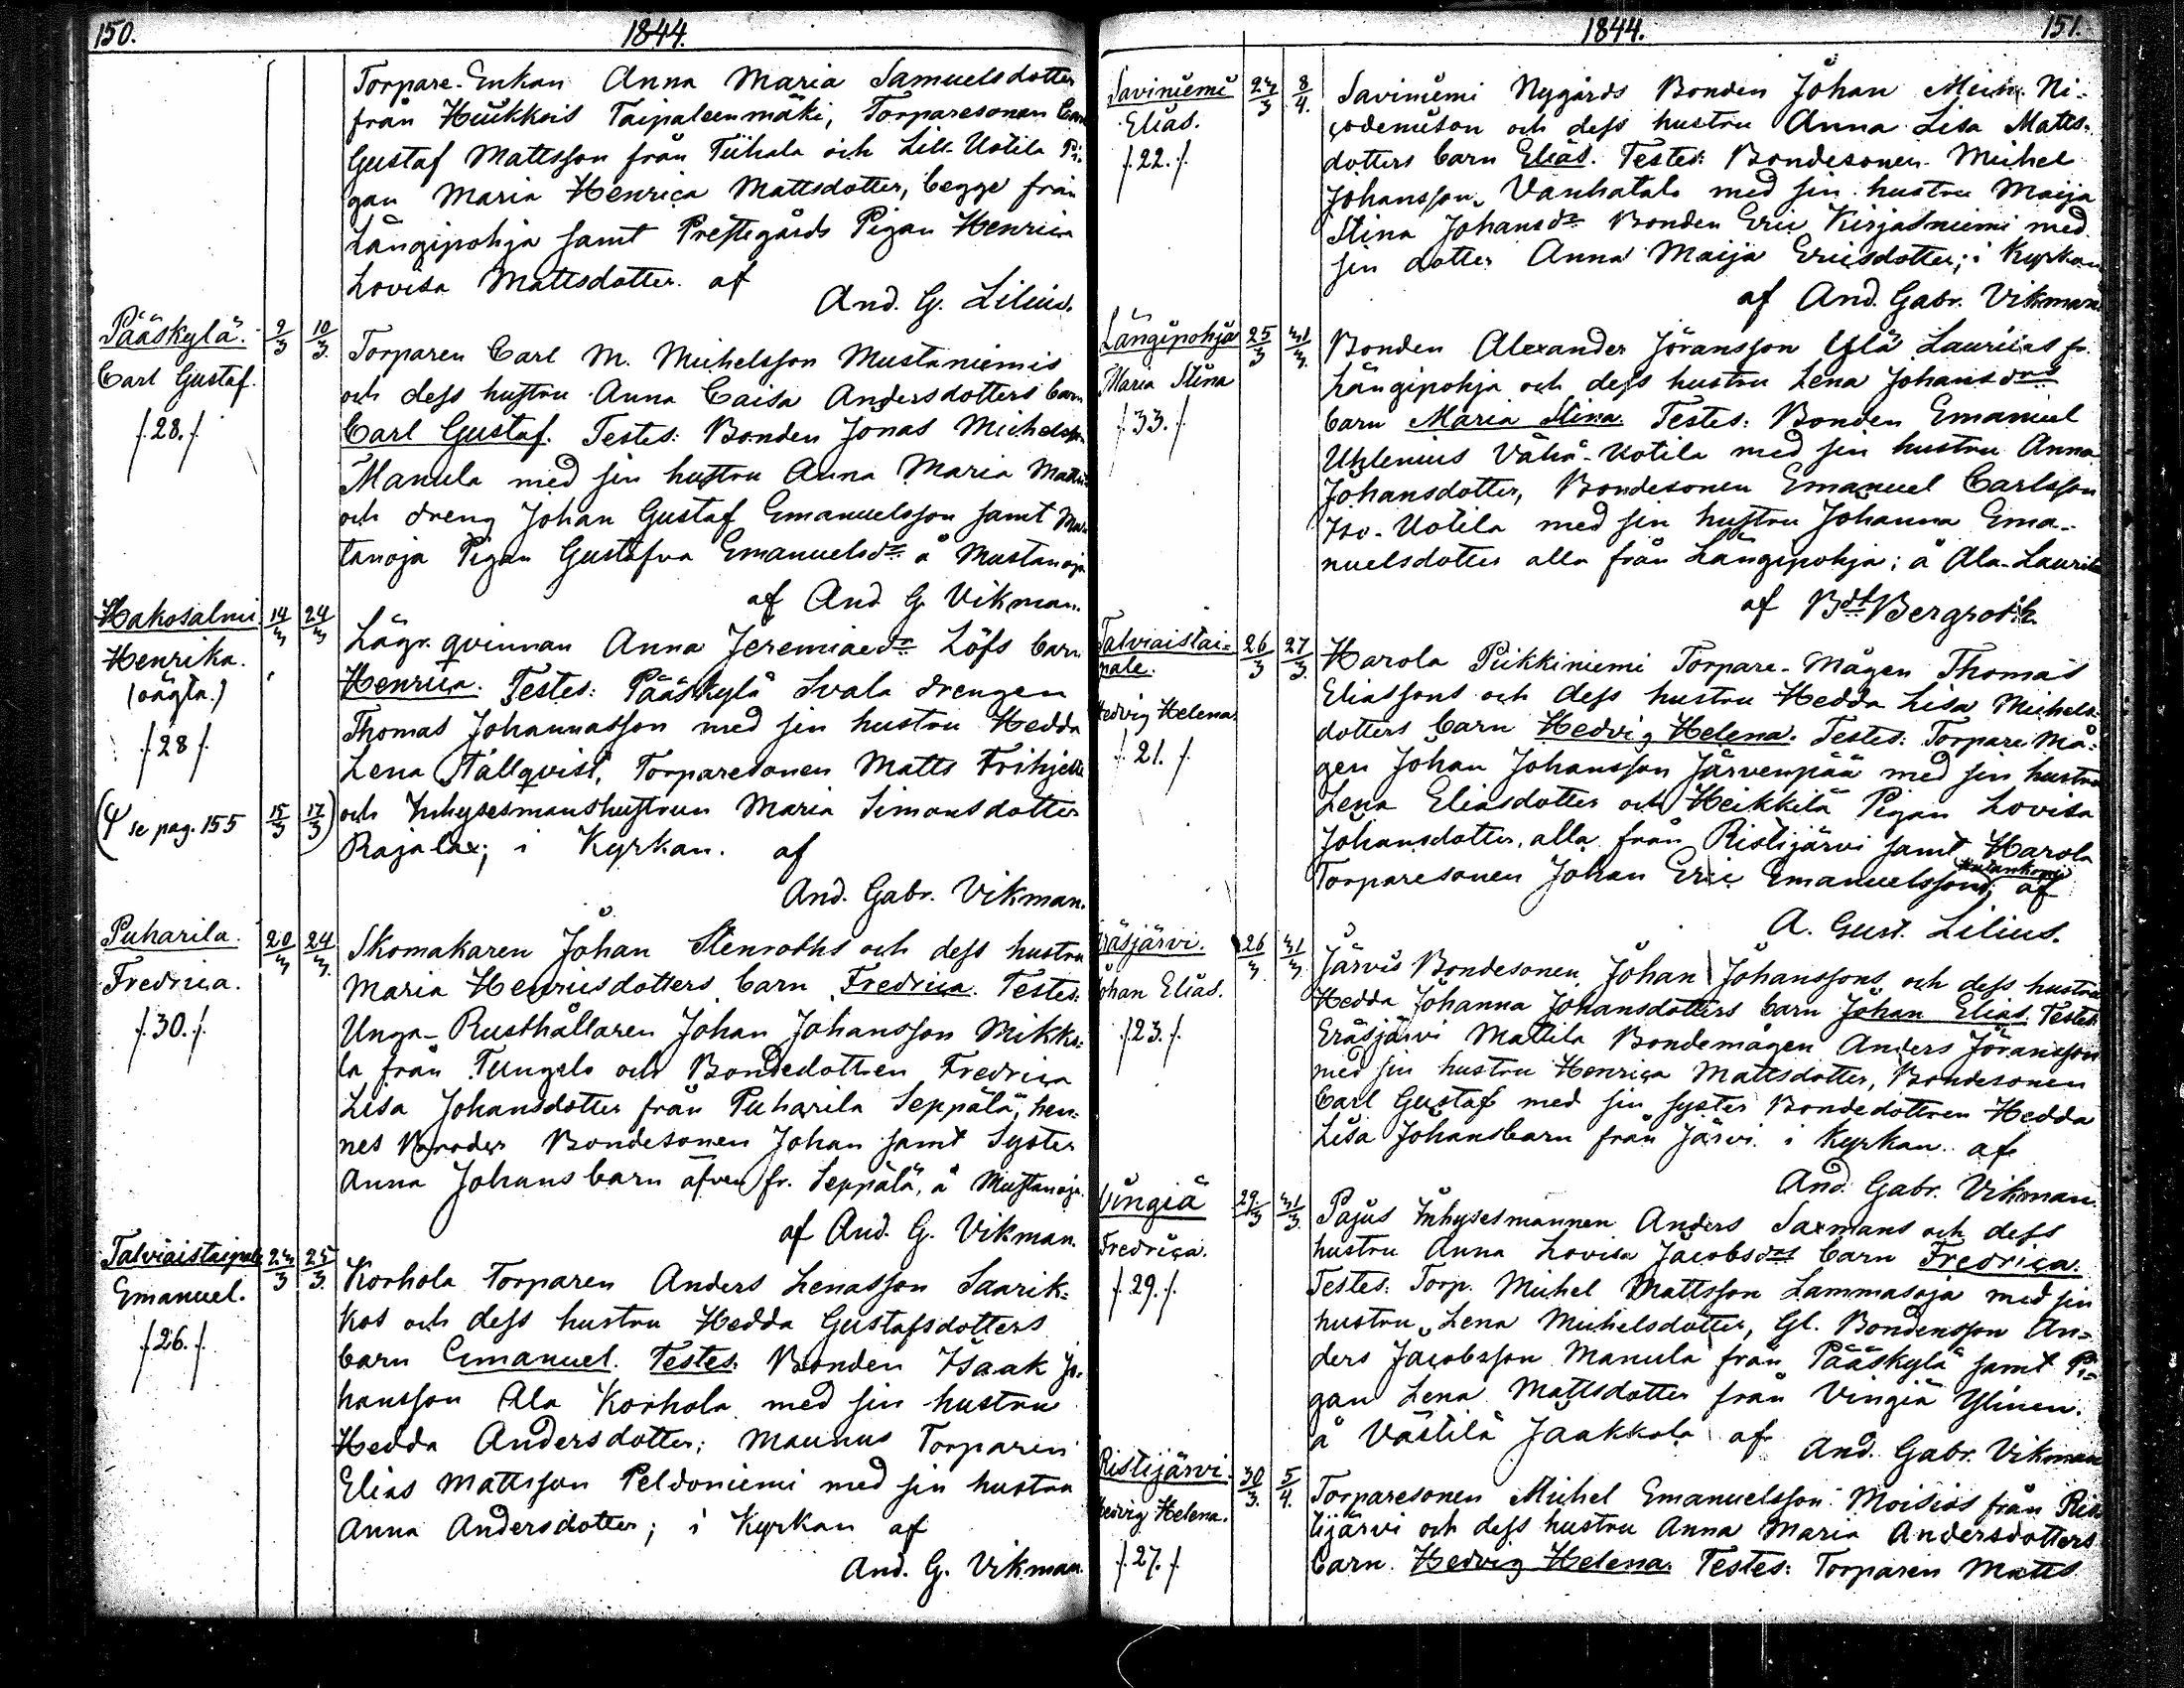 150.
1844.
Torpare-Enkan Anna Maria Samuelsdotter
från Heikkois Taipaleenmäki, Torparesonen Carl
Gustaf Mattsson från Tiihala och Lill-Uotila Pi-
gan Maria Henrica Mattsdotter, begge från
Längipohja samt Prestegårds Pigan Henrica
Lovisa Mattsdotter. af
And. G. Lilius.
Pääskylä.
Carl Gustaf.
f. 28. f.
9/3
10/3.
Torparen Carl M. Michelsson Mustaniemis
och dess hustru Anna Caisa Andersdotters barn
Carl Gustaf. Testes: Bonden Jonas Michelsson
Manula med sin hustru Anna Maria
och dreng Johan Gustaf Emanuelsson samt Mus-
tanoja Pigan Gustafva Emanuelsdr å Mustanoja
af And G. Vikman.
Hakosalmi
Henrika.
(oägta.)
f. 28 f.
14/3
24/3
Lägr. qvinnan Anna Jeremiaedr Löfs barn
Henrica. Testes: Pääskylä Svala drengen
Thomas Johannasson med sin hustru Hedda
Lena Ställqvist, Torparesonen Matts
(se pag. 155
15/3
17/3)
och Inhysesmanshustrun Maria Simonsdotter
Rajalax; i Kyrkan. af
And. Gabr. Vikman.
Puharila.
Fredrica.
f. 30. f.
20/3
24/3.
Skomakaren Johan Stenroths och dess hustru
Maria Henricsdotters barn Fredrica. Testes:
Unga-Rusthållaren Johan Johansson Mikko-
la från Tungelo och Bondedottren Fredrica
Lisa Johansdotter från Puharila Seppälä, hen-
nes Broder Bondesonen Johan samt Syster
Anna Johans barn äfven fr. Seppälä, å Mustanoja.
af And. G. Vikman.
Talviaistaipale
Emanuel.
f. 26. f.
23/3
25/3.
Korhola Torparen Anders Lenasson Saarik-
kos och dess hustru Hedda Gustafsdotters
barn Emanuel. Testes: Bonden Isaak Jo-
hansson Ala Korhola med sin hustru
Hedda Andersdotter; Maunus Torparen
Elias Mattsson Peldoniemi med sin hustru
Anna Andersdotter; i Kyrkan af
And. G. Vikman.
1844.
151.
Saviniemi
Elias.
f. 22. f.
23/3
8/4.
Saviniemi Nygårds Bonden Johan Mich. Ni-
codemison och dess hustru Anna Lisa Matts-
dotters barn Elias. Testes: Bondesonen Michel
Johansson Vanhatalo med sin hustru Maija
Stina Johansdr Bonden Eric Kirjasniemi med
sin dotter Anna Maija Ericsdotter; i Kyrkan
af And. Gabr. Vikman.
Längipohja
Maria Stina
f. 33. f.
25/3
31/3.
Bonden Alexander Jöransson Ylä Laurilas fr.
Längipohja och dess hustru Lena Johansdrs
barn Maria Stina. Testes: Bonden Emanuel
Uhlenius Vähä-Uotila med sin hustru Anna
Johansdotter, Bondesonen Emanuel Carlsson
Iso-Uotila med sin hustru Johanna Ema-
nuelsdotter alla från Längipohja; å Ala-Laurila
af Bdt Bergroth.
Talviaistai-
pale.
Hedvig Helena.
f. 21. f.
26/3
27/3.
Harola Peikkiniemi Torpare-Mågen Thomas
Eliassons och dess hustru Hedda Lisa Michels-
dotters barn Hedvig Helena. Testes: Torpare Må-
gen Johan Johansson Järvenpää med sin hustru
Lena Eliasdotter och Heikkilä Pigan Lovisa
Johansdotter, alla från Ristijärvi samt Harola
Torparesonen Johan Eric Emanuelsson; af
A. Gust. Lilius.
Eräsjärvi.
Johan Elias.
f. 23. f.
26/3.
31/3.
Järvis Bondesonen Johan Johanssons och dess hustru
Hedda Johanna Johansdotters barn Johan Elias. Testes:
Eräsjärvi Mattila Bondemågen Anders Jöransson
med sin hustru Henrica Mattsdotter, Bondesonen
Carl Gustaf med sin syster Bondedottren Hedda
Lisa Johansbarn från Järvi. i Kyrkan. af
And. Gabr. Vikman.
Vingiä
Fredrica.
f. 29. f.
29/3
31/3.
Pajus Inhysesmannen Anders Saxmans och dess
hustru Anna Lovisa Jacobsdrs barn Fredrica.
Testes: Torp. Michel Mattsson Lammasoja med sin
hustru Lena Michelsdotter, Gl. Bondensson An-
ders Jacobsson Manula från Pääskylä samt Pi-
gan Lena Mattsdotter från Vingiä Ylinen.
å Västilä Jaakkola af And. Gabr. Vikman
Ristijärvi.
Hedvig Helena.
f. 27. f.
30/3.
5/4.
Torparesonen Michel Emanuelsson Moisios från Ris-
tijärvi och dess hustru Anna Maria Andersdotters
barn Hedvig Helena. Testes: Torparen Matts